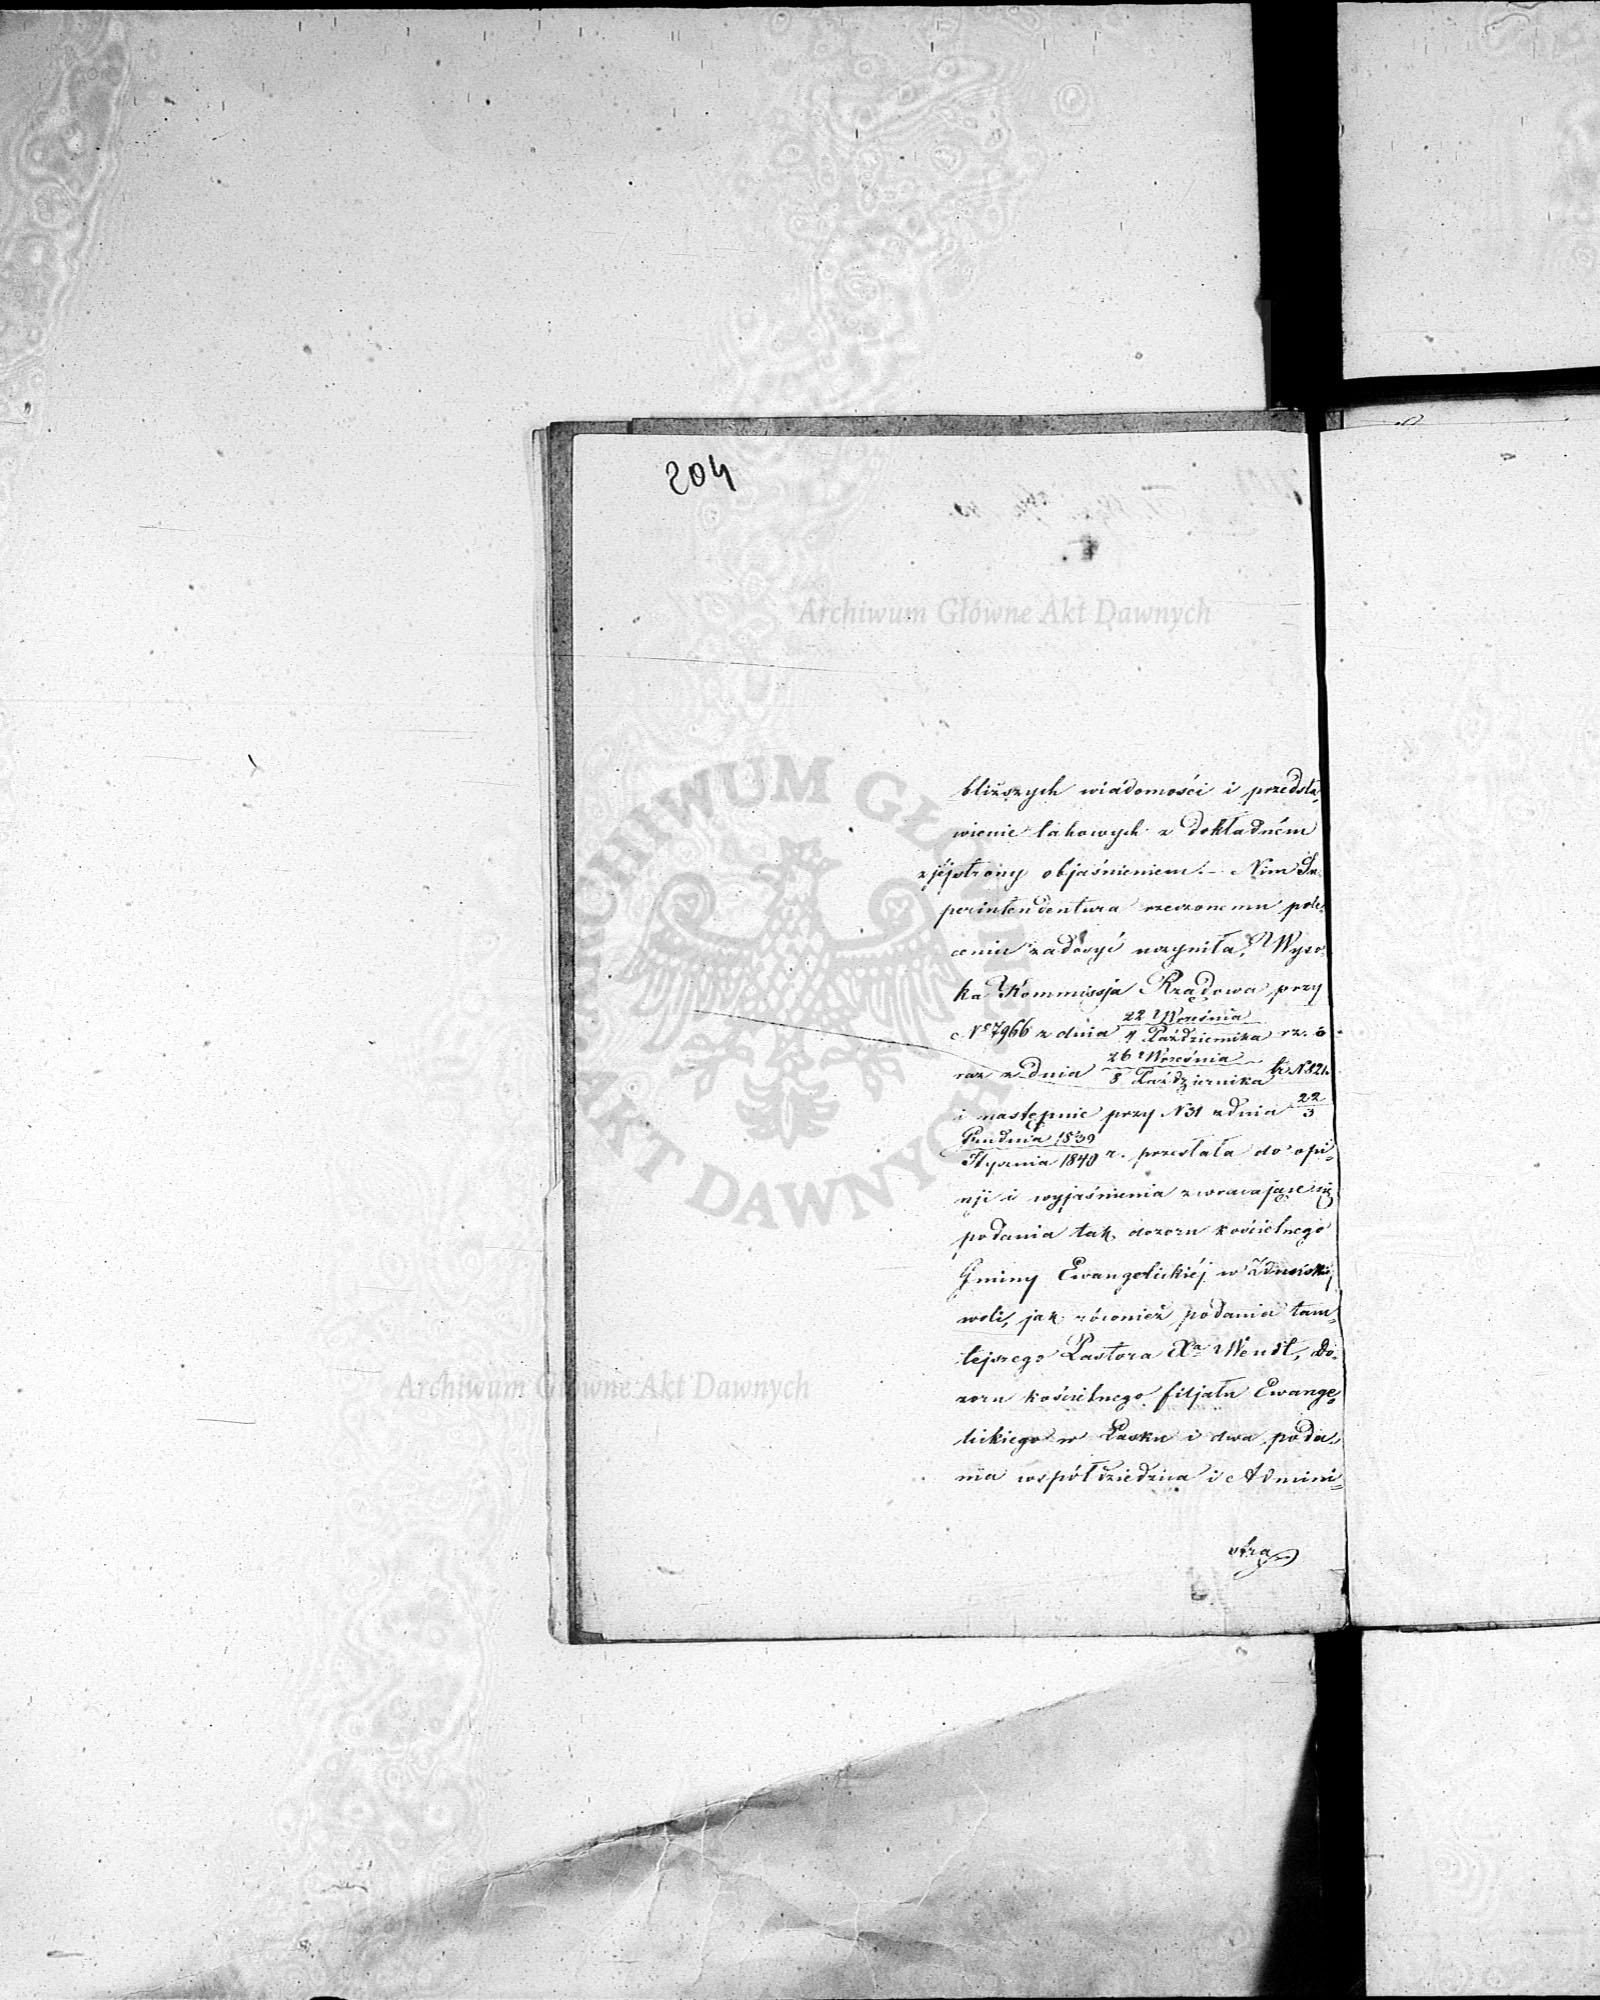 204
bliższych wiadomości i przedsta„
wienie takowych z dokładném
z jéj strony objaśnieniem. – Nim Su„
perintendentura rzeczonemu pole„
ceniu zadosyć uczyniła, Wyso„
ka Kommissja Rządowa przy
№ 7966 z dnia 22 Września / 4 Października rz. o„
raz z dnia 26 Września / 8 Października № 821.
i następnie przy N 31 z dnia 22 / 3
Grudnia 1839 / Stycznia 1840 r. przesłała do opi„
nji i wyjaśnienia zwracające się
podania tak dozoru kościelnego
Gminy Ewangelickiéj w Zduńskiej
woli, jak również podania tam„
tejszego Pastora Xa Wendt, Do„
zoru kościelnego filjału Ewange„
lickiego w Łasku i dwa poda„
nia współdziedzica i Admini„
stra
Archiwum Główne Akt Dawnych
Archiwum Główne Akt Dawnych
ARCHIWUM GŁÓWNE AKT DAWNYCH